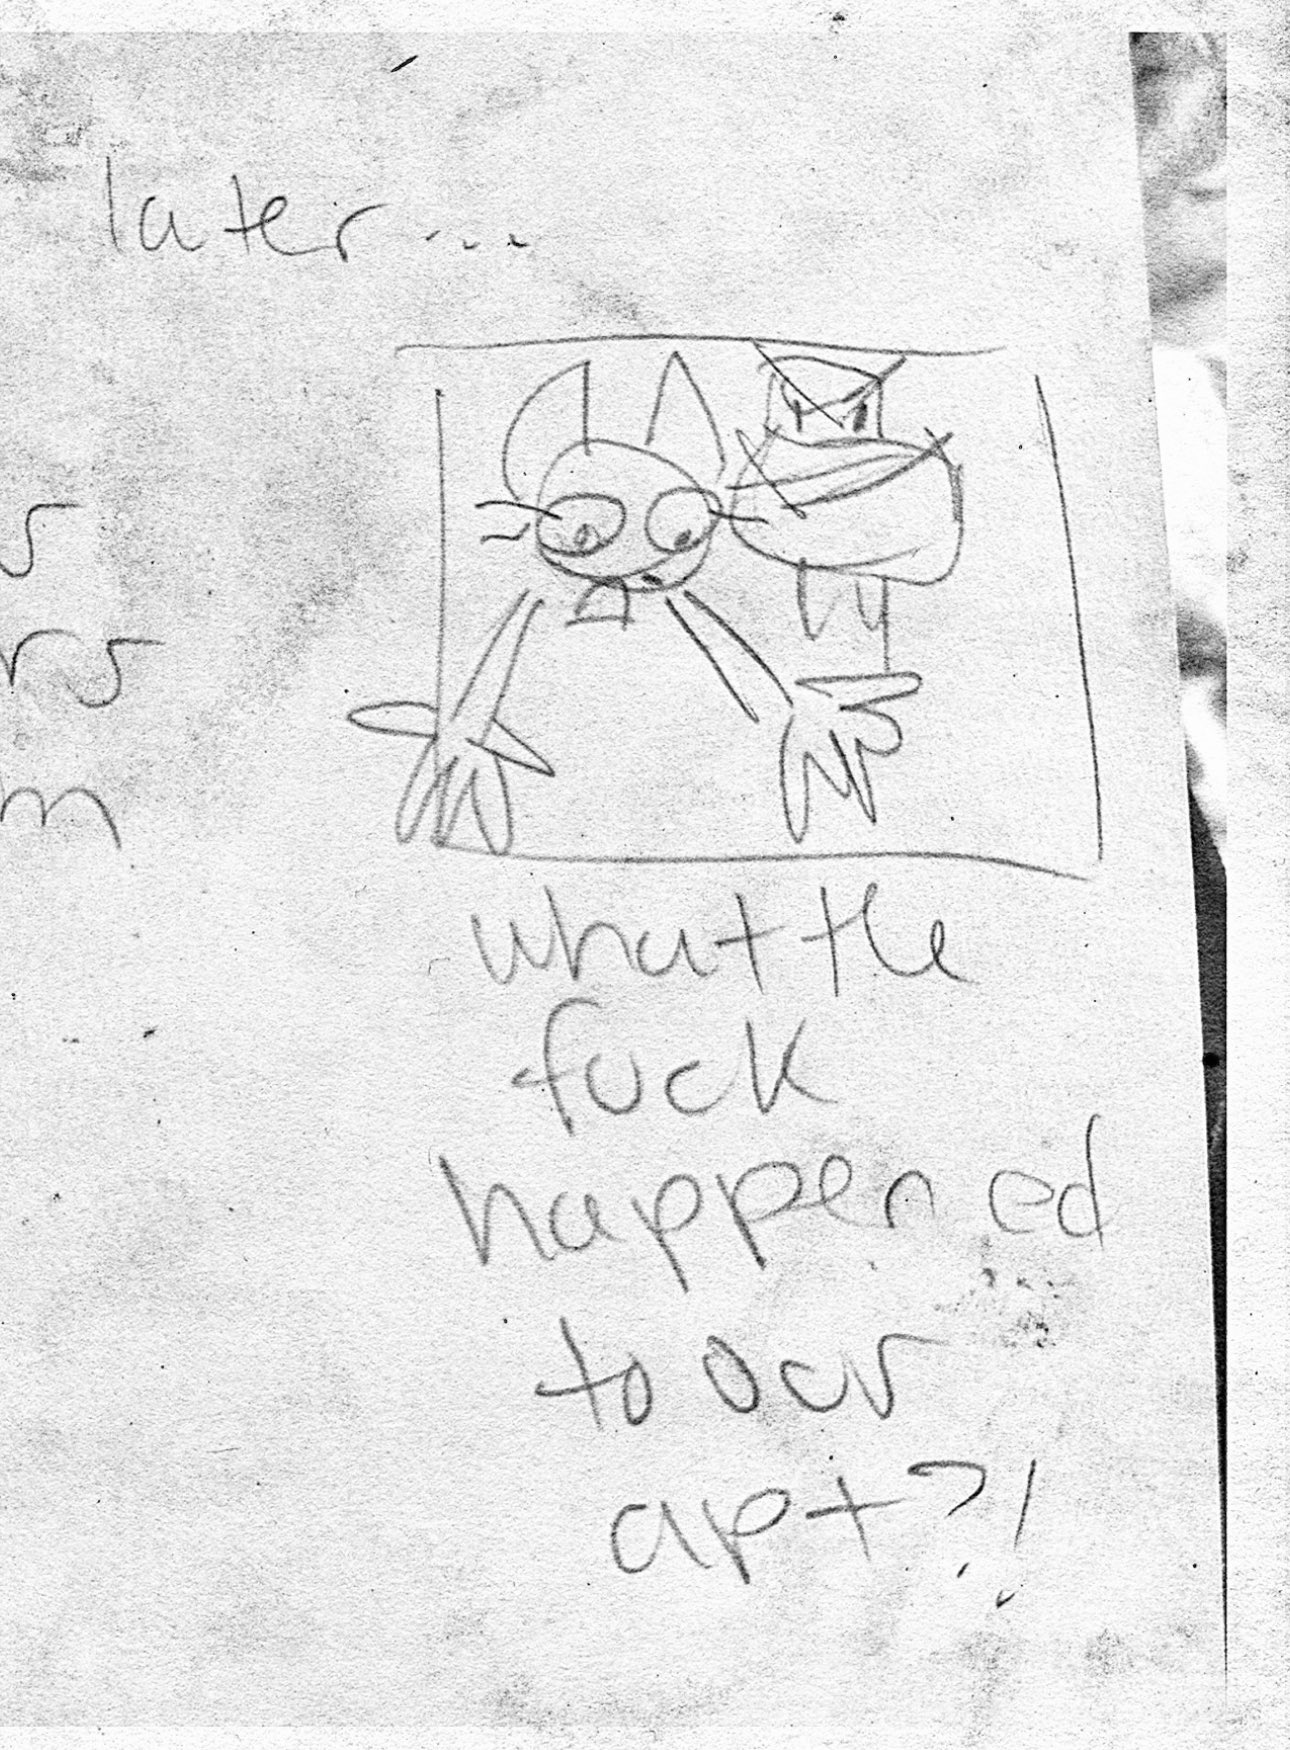 later...
what the
fuck
happened
to our
apt?!